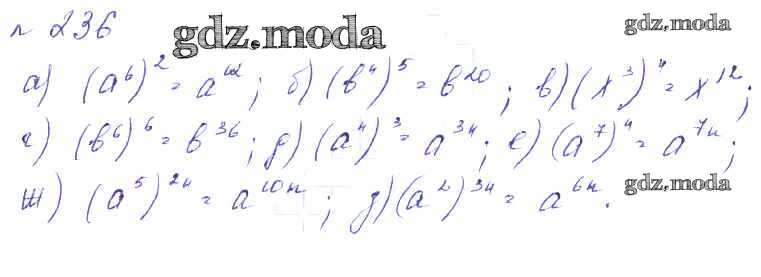 № 236 gdz.moda gdz.moda
а) (a⁶)² = a¹²; б) (b⁴)⁵ = b²⁰; в) (x³)⁴ = x¹²;
г) (b⁶)⁶ = b³⁶; д) (aⁿ)³ = a³ⁿ; е) (a⁷)ⁿ = a⁷ⁿ;
ж) (a⁵)²ⁿ = a¹⁰ⁿ; д) (a²)³ⁿ = a⁶ⁿ. gdz.moda